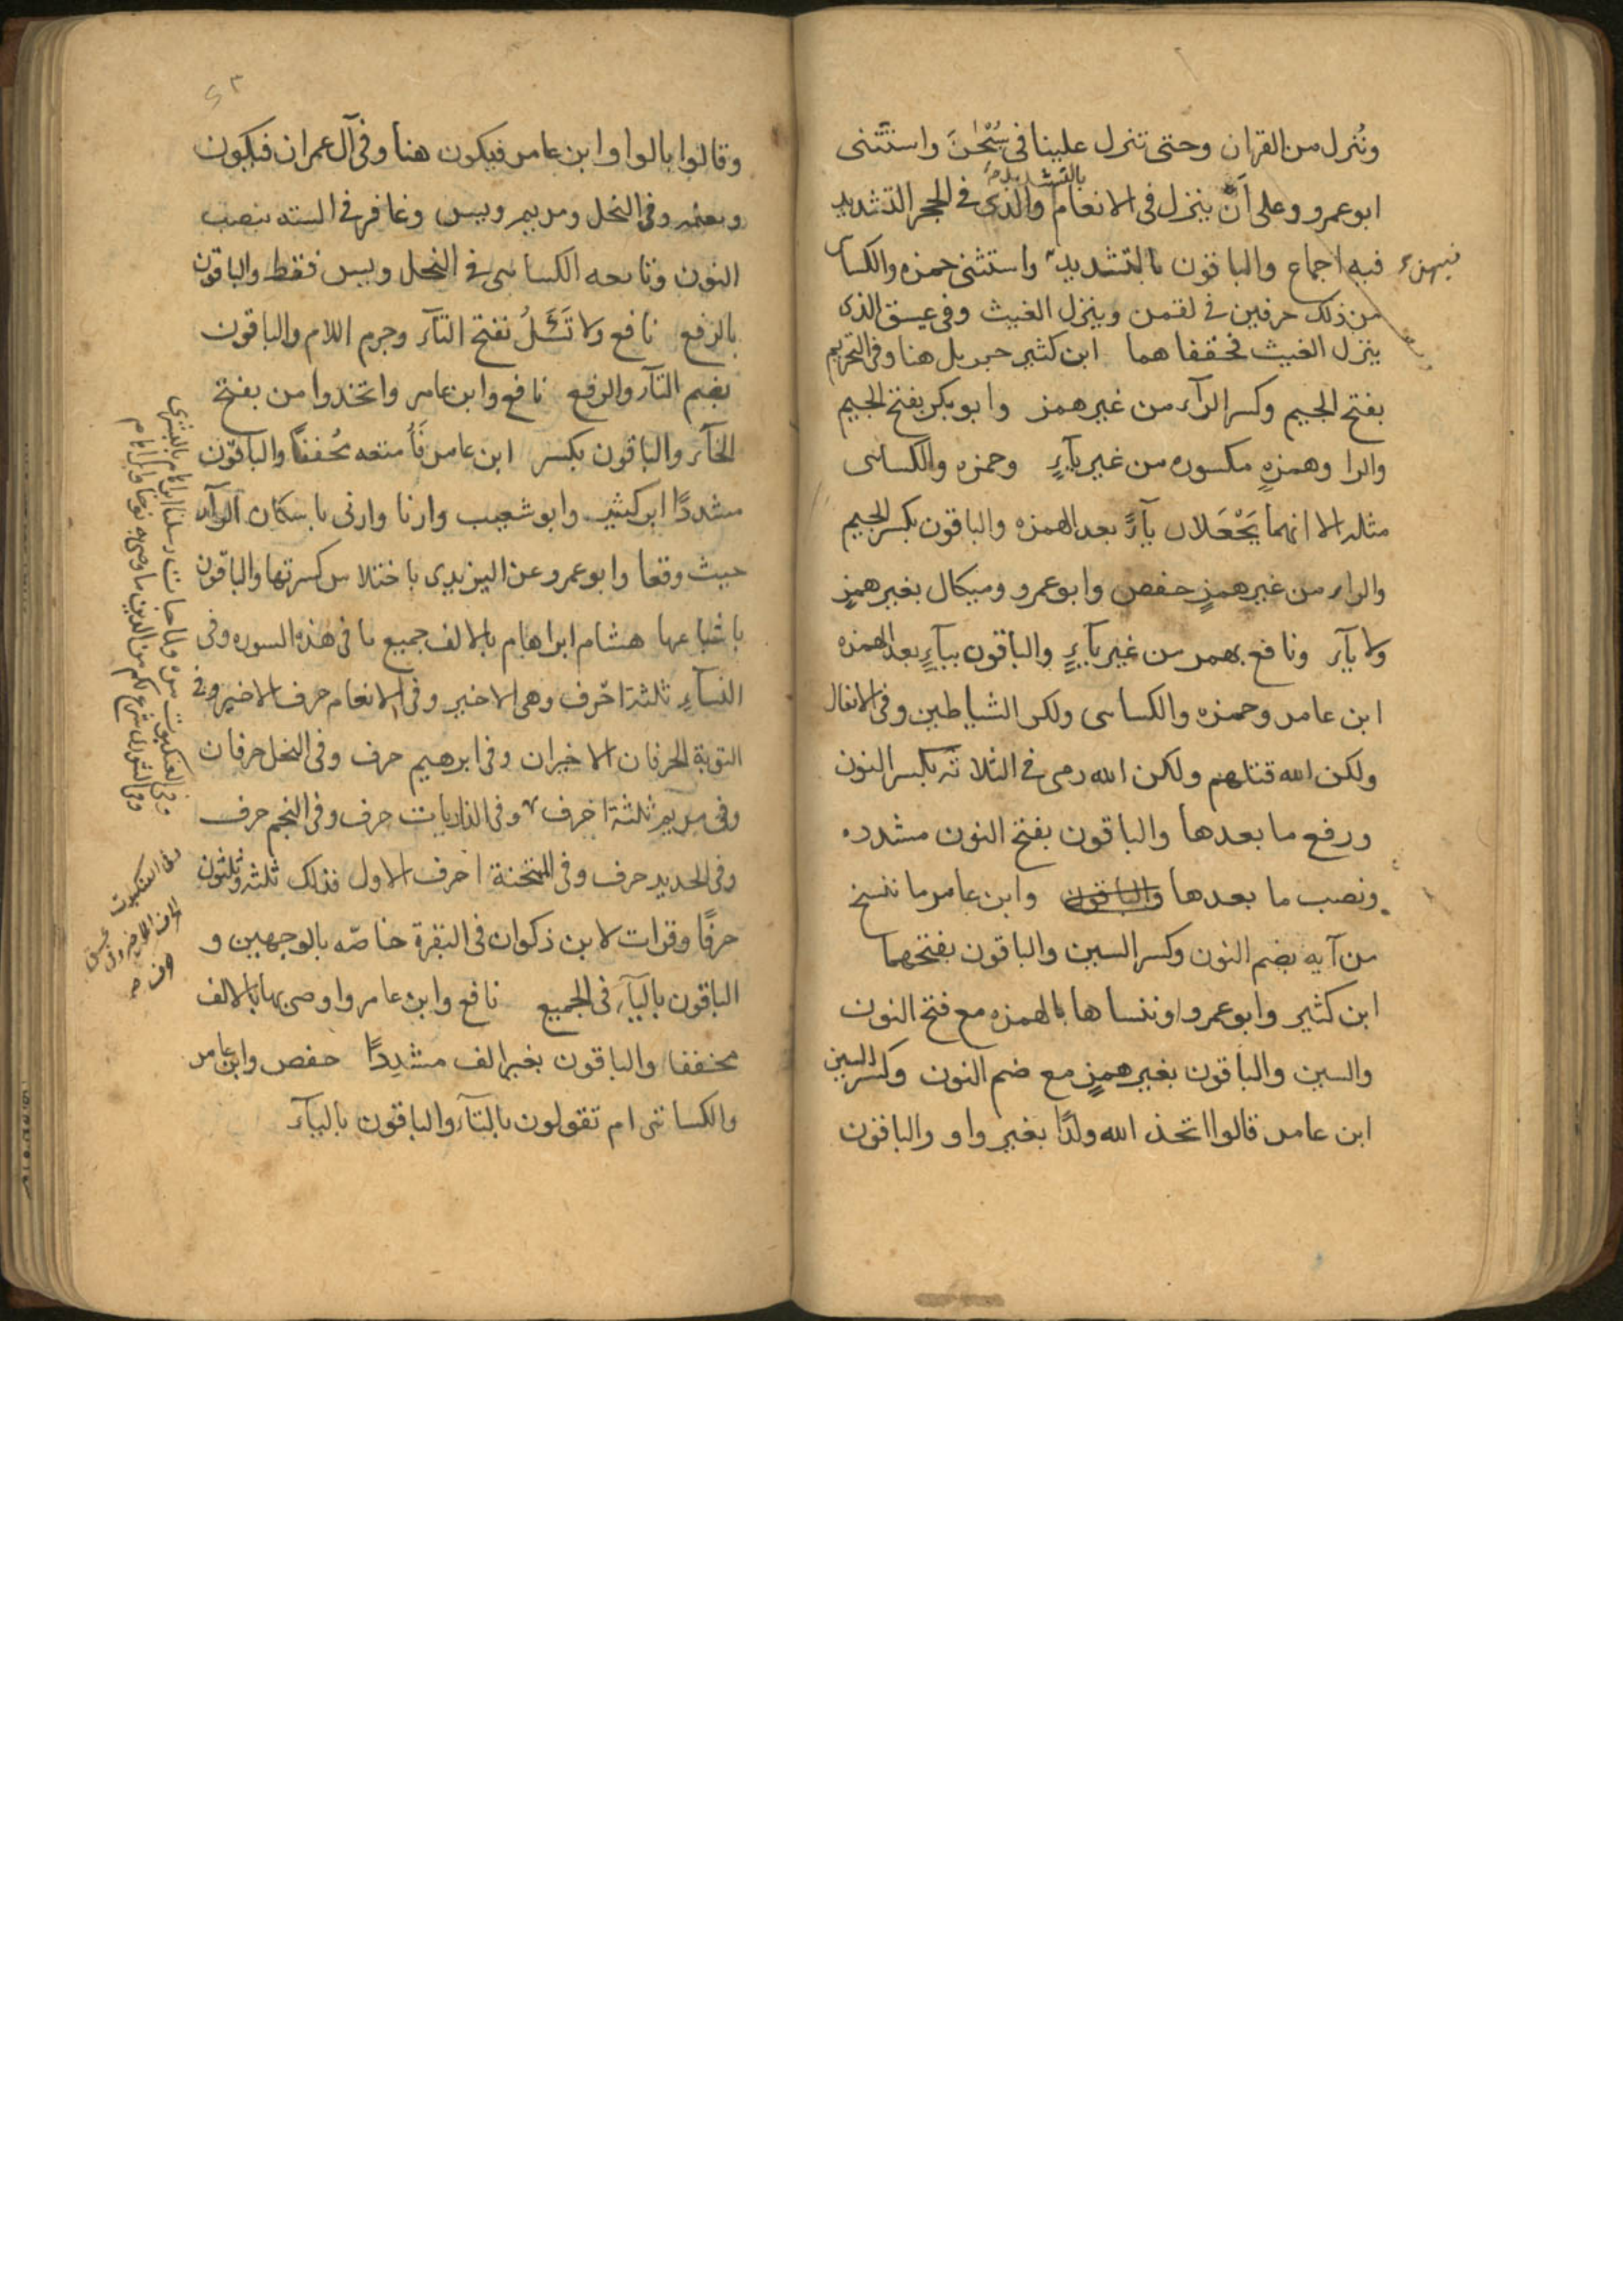 ونُنزل من القران وحتى تنزل علينا فى سُبْحٰنَ واستثنى
ابو عمرو وعلى اَنْ ينزل فى الانعام والذى فى الحجر التشديد
بالتشديد
فيه اجماع والباقون بالتشديد واستثنى حمزه والكسا
من ذلك حرفين فى لقمن وينزل الغيث وفى عسق الذى
ينزل الغيث فخففاهما ابن كثير جبريل هنا وفى التحريم
بفتح الجيم وكسر الرآء من غير همز وابو بكر بفتح الجيم
والرا وهمزهٍ مكسوره من غير يآءٍ وحمزه والكساىى
مثله الا انهما يَجْعَلان يآءً بعد الهمزه والباقون بكسر الجيم
والراء من غير همزٍ حفص وابو عمرو وميكال بغير همزٍ
ولا يآء ونافع بهمز من غير يآءٍ والباقون بيآءٍ بعد الهمزه
ابن عامر وحمزه والكساىى ولكن الشياطين وفى الانفال
ولكن الله قتلهم ولكن الله رمى فى الثلاثه بكسر النون
ورفع ما بعدها والباقون بفتح النون مشدده
ونصب ما بعدها والباقون وابن عامر ما ننسخ
من آيه بضم النون وكسر السين والباقون بفتحهما
ابن كثير وابو عمرو او ننساها بالهمزه مع فتح النون
والسين والباقون بغير همزٍ مع ضم النون وكسر السين
ابن عامر قالوا اتخذ الله ولدًا بغير واو والباقون
وقالوا بالواو ابن عامر فيكون هنا وفى آل عمران فيكون
ونعلمه وفى النحل ومريم ويس وغافر فى السته بنصب
النون وتابعه الكساىى فى النحل ويس فقط والباقون
بالرفع نافع ولا تَسْئَلْ بفتح التآء وجزم اللام والباقون
بضم التآء والرفع نافع وابن عامر واتخذوا من بفتح
الخآء والباقون بكسر ابن عامر فَأُمتعه مخففًا والباقون
مشددًا ابن كثير وابو شعيب وارنا وارنى باسكان الرآء
حيث وقعا وابو عمرو عن اليزيدى باختلاس كسرتها والباقون
باشباعها هشام ابراهام بالالف جميع ما فى هذه السوره وفى
النسآءِ ثلثة احرف وهى الاخير وفى الانعام حرف الاخير وفى
التوبة الحرفان الاخيران وفى ابرهيم حرف وفى النحل حرفان
وفى مريم ثلثة احرف وفى الذاريات حرف وفى النجم حرف
وفى الحديد حرف وفى الممتحنة احرف الاول فذلك ثلثه وثلثون
حرفًا وقرات لابن ذكوان فى البقرة خاصّه بالوجهين و
الباقون باليآء فى الجميع نافع وابن عامر واوصى بها بالالف
مخففا والباقون بغير الف مشددًا حفص وابن عامر
والكسائى ام تقولون بالتآء والباقون باليآء
وفى العنكبوت ولما جات رسلنا ابراهام بالبشرى
وفى الشورى شرع لكم من الدين ما وصى به نوحا
وفى العنكبوت